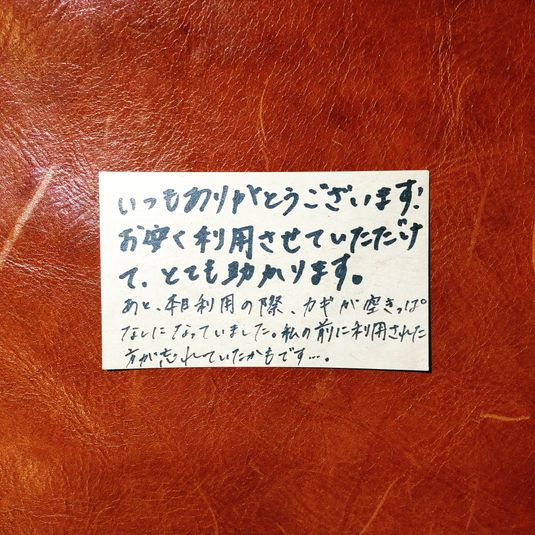 いつもありがとうございます!
お安く利用させていただけ
て、とても助かります。
あと、本日利用の際、カギが空きっぱ
なしになっていました。私の前に利用された
方が忘れていたかもです…。